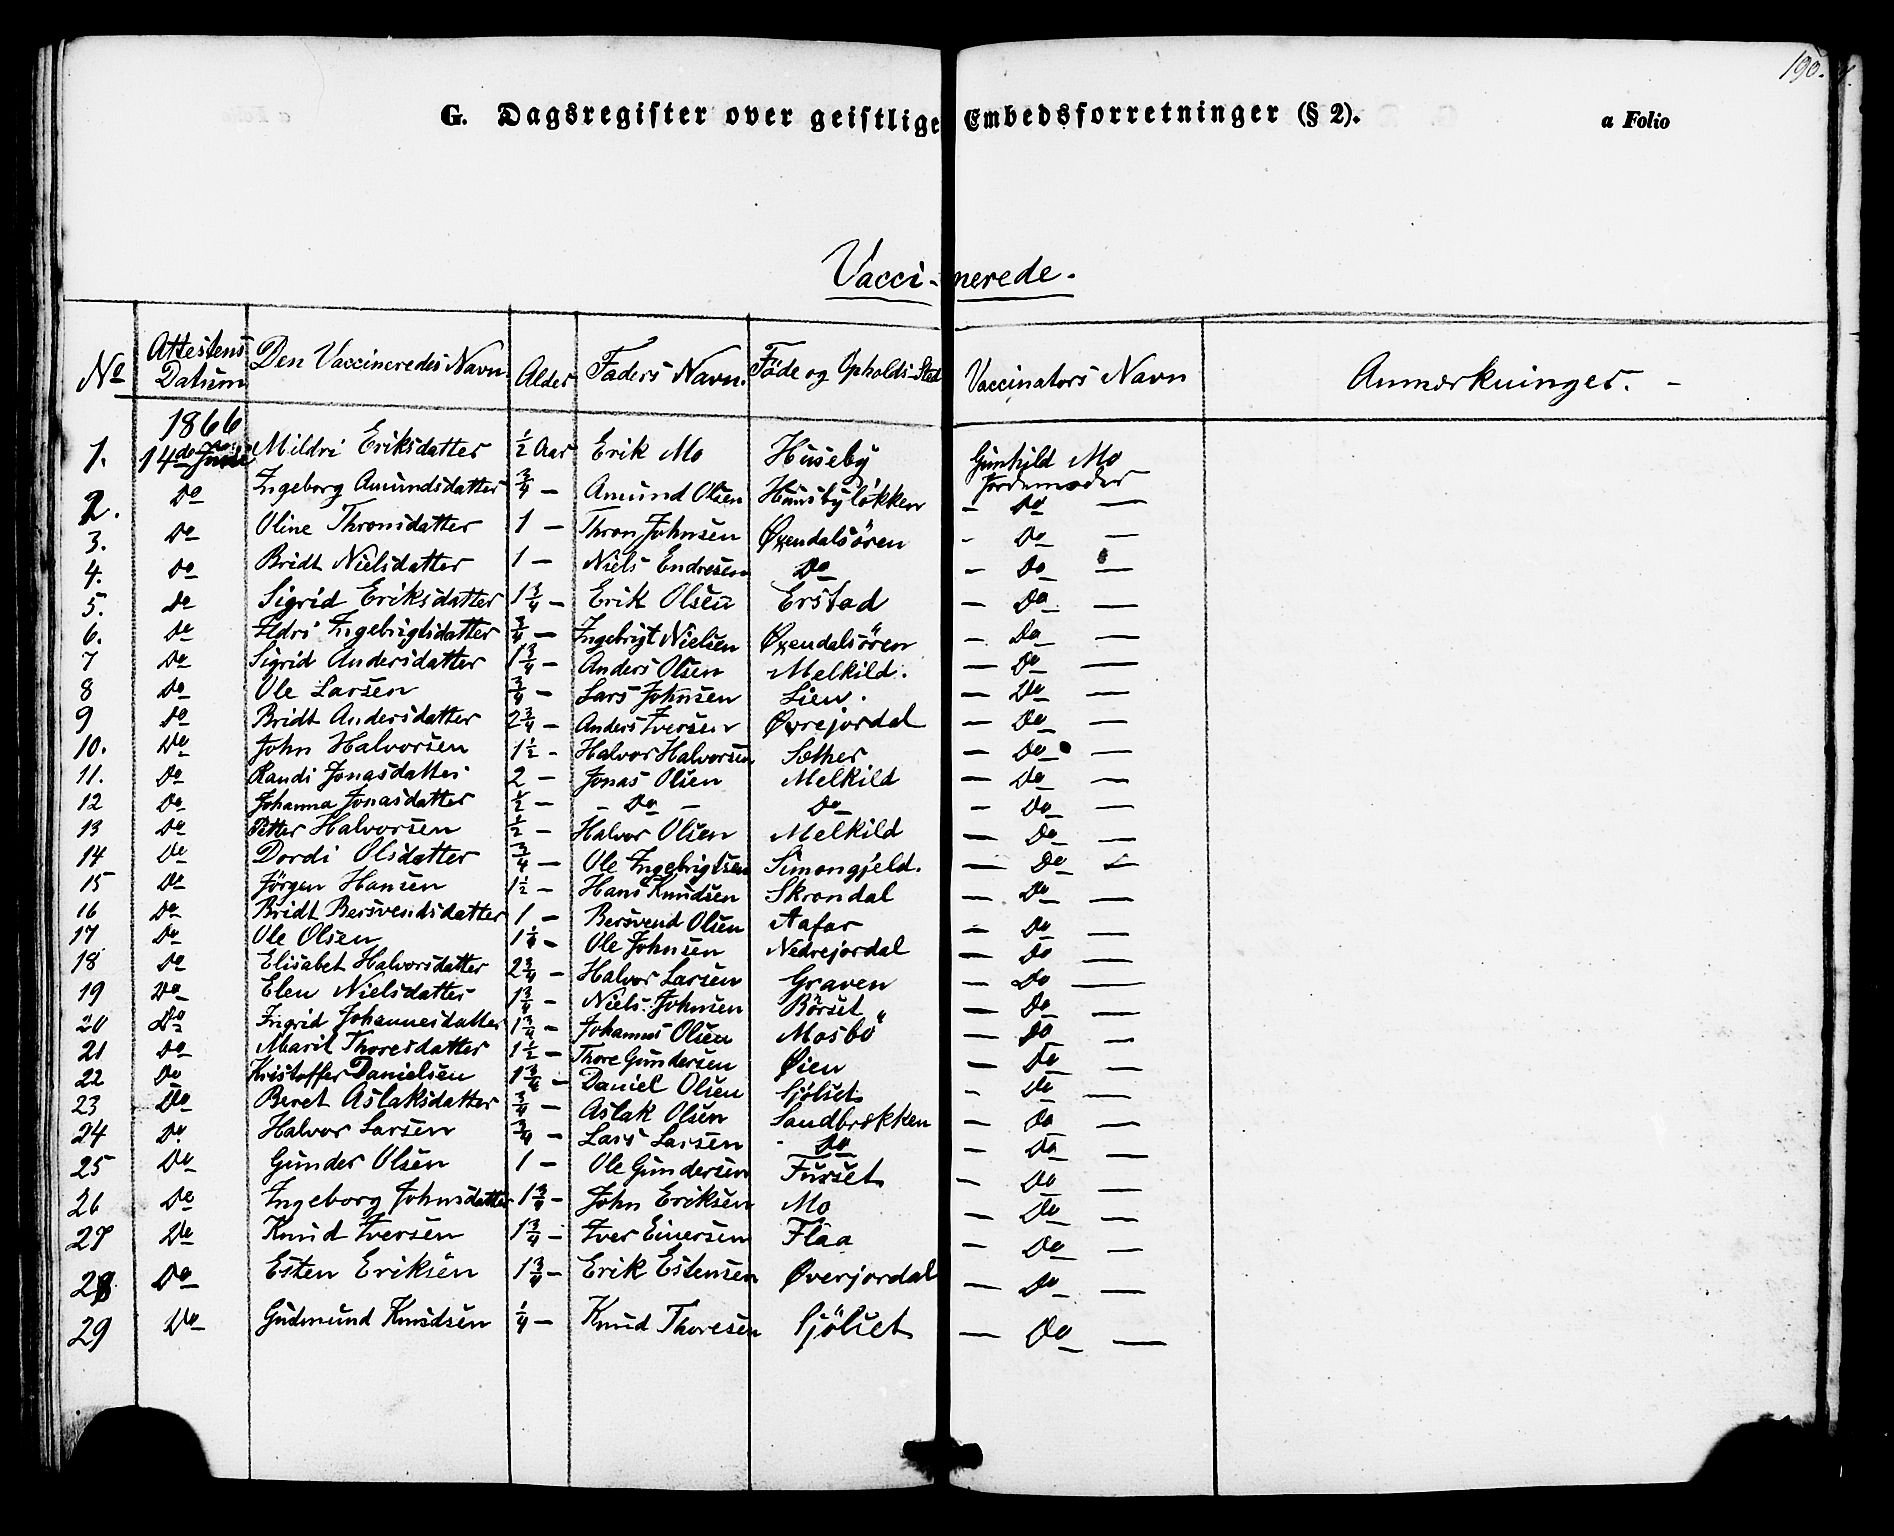 190.
G. Dagsregister over geistlige Embedsforretninger (§ 2). a Folio
Vacci-nerede.
No Attestens Datum Den Vaccineredes Navn Alder Faders Navn. Föde og Opholds Sted Vaccinators Navn Anmærkninger. -
1866
1. 14de Juni Mildri Eriksdatter ½ Aar Erik Mo Huseby Gunhild Mo Jordemoder
2. Do Ingeborg Amundsdatter ¾ — Amund Olsen Husbyløkken - Do —
3. Do Oline Thronsdatter 1 — Thron Johnsen Øxendalsören - Do —
4. Do Bridt Nielsdatter 1 — Niels Endresen Do — Do —
5. Do Sigrid Eriksdatter 1¾ — Erik Olsen Erstad — Do —
6. Do Ildri Ingebrigtsdatter ¾ — Ingebrigt Nielsen Øxendalsören — Do —
7 Do Sigrid Andersdatter 1¾ — Anders Olsen Melkild. — Do —
8 Do Ole Larsen ¾ — Lars Johnsen Lien. — Do —
9 Do Bridt Andersdatter 2¾ — Anders Iversen Øvrejordal — Do —
10. Do John Halvorsen 1½ - Halvor Halvorsen Sæther — Do —
11. Do Randi Jonasdatter 2 — Jonas Olsen Melkild — Do —
12 Do Johanna Jonasdatter ½ — - Do - Do — Do —
13 Do Petter Halvorsen ½ — Halvor Olsen Melkild — Do —
14 Do Dordi Olsdatter ¾ — Ole Ingebrigtsen Simongjeld. — Do —
15 Do Jörgen Hansen 1½ — Hans Knudsen Skrondal — Do —
16 Do Bridt Bersvendsdatter 1 — Bersvend Olsen Aafar — Do —
17 Do Ole Olsen 1¼ — Ole Johnsen Nedrejordal — Do —
18 Do Elisabet Halvorsdatter 2¾ — Halvor Larsen Graven — Do —
19 Do Elen Nielsdatter 1¾ — Niels Johnsen Börset — Do —
20 Do Ingrid Johannesdatter 1¾ — Johannes Olsen Mosbö — Do —
21 Do Marit Thoresdatter 1½ — Thore Gundersen Øien — Do —
22 Do Kristoffer Danielsen 1¾ — Daniel Olsen Sjölset — Do —
23 Do Beret Aslaksdatter ¾ — Aslak Olsen Sandbrækken — Do —
24 Do Halvor Larsen ¾ — Lars Larsen - Do — Do —
25 Do Gunder Olsen 1 — Ole Gundersen Furset — Do —
26 Do Ingeborg Johnsdatter 1¾ — John Eriksen Mo — Do —
27 Do Knud Iversen 1¾ — Iver Einersen Flaa — Do —
28 Do Esten Eriksen 1¾ — Erik Estensen Øverjordal — Do —
29 Do Gudmund Knudsen ¼ — Knud Thoresen Sjölset — Do —